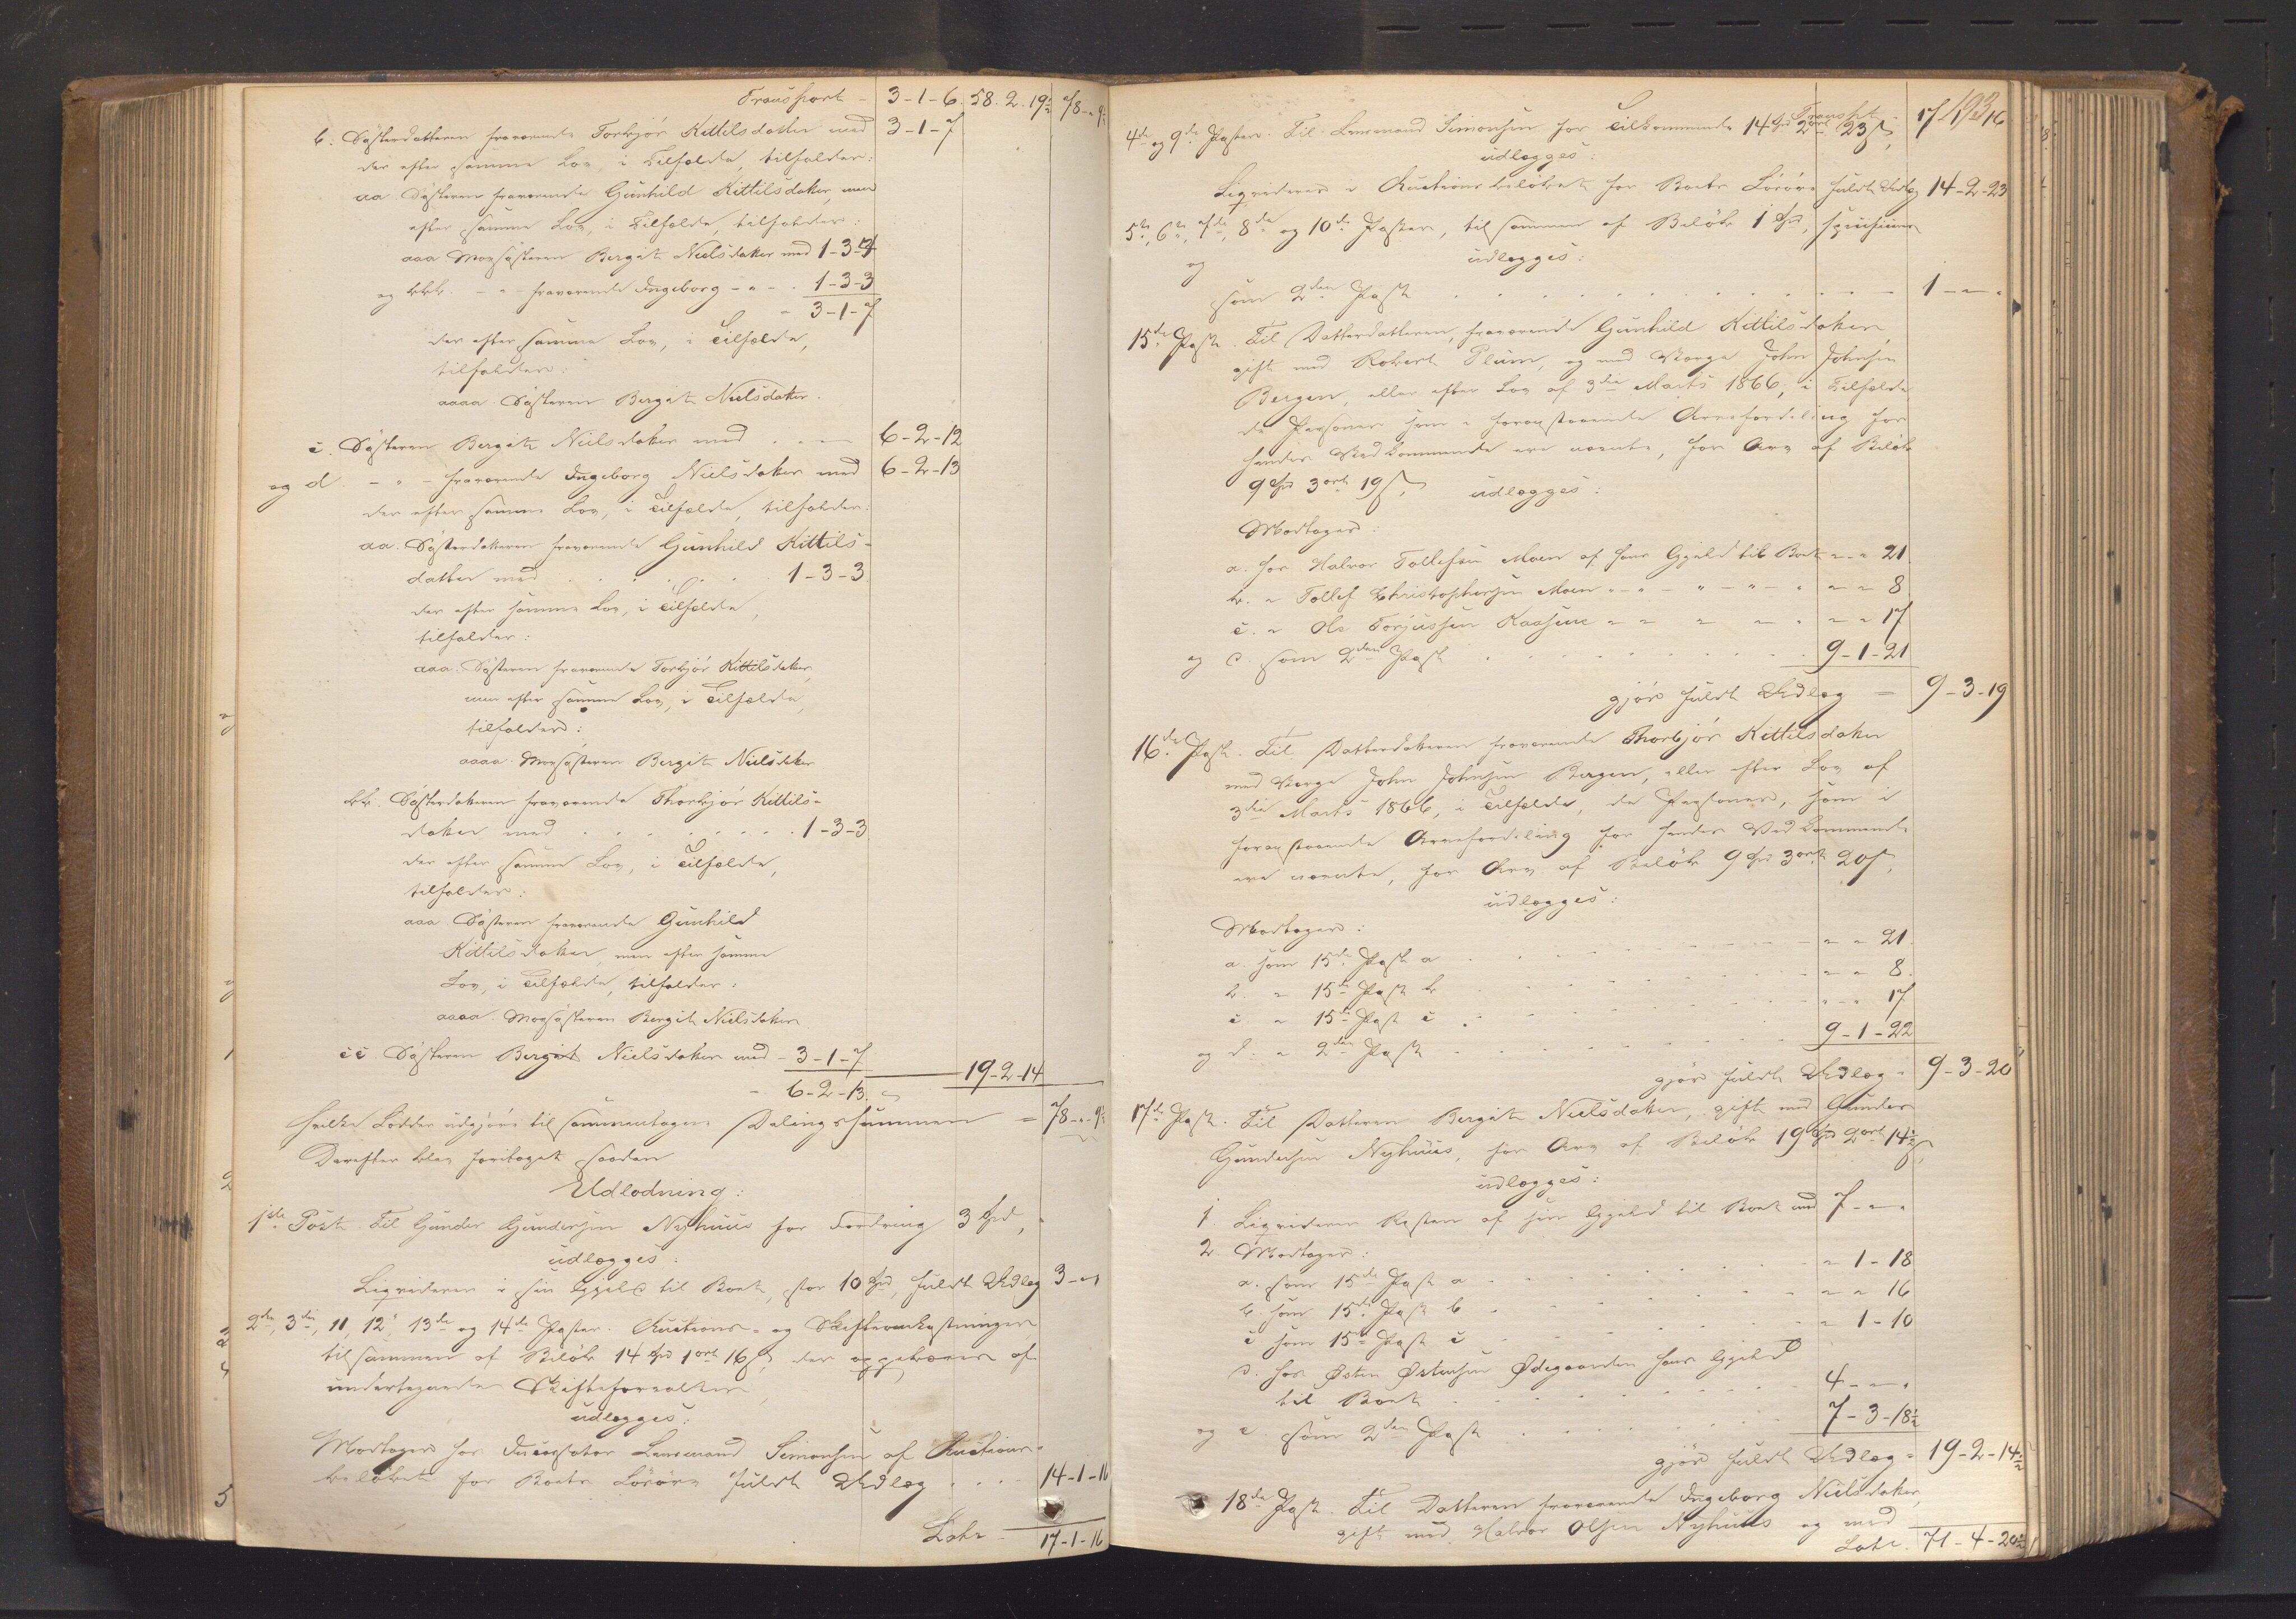 Transport - 3-1-6. 58. 2. 19½ 78 - " 9½
b. Søsterdatteren fraværende Torbjør Kittilsdatter med 3-1-7
der efter samme Lov, i Tilfælde, tilfalder:
aa Søsteren fraværende Gunhild Kittilsdatter, men
efter samme Lov, i Tilfælde, tilfalder:
aaa Morsøsteren Bergit Nielsdatter med 1-3-4
og bbb. - " - fraværende Ingeborg - " - . 1-3-3
- 3-1-7
der efter samme Lov, i Tilfælde,
tilfalder:
aaaa. Søsteren Bergit Nielsdatter.
c. Søsteren Bergit Nielsdatter med . . . 6-2-12
og d. - " - fraværende Ingeborg Nielsdatter med 6-2-13
der efter samme Lov, i Tilfælde, tilfalder:
aa. Søsterdatteren fraværende Gunhild Kittils-
datter med . . . . . . 1-3-3.
der efter samme Lov, i Tilfælde,
tilfalder:
aaa. Søsteren fraværende Torbjør Kittilsdatter,
men efter samme Lov, i Tilfælde,
tilfalder:
aaaa. Morsøsteren Bergit Nielsdatter
bb. Søsterdatteren fraværende Thorbjør Kittils-
datter med . . . . . . . 1-3-3
der efter samme Lov, i Tilfælde,
tilfalder:
aaa. Søsteren fraværende Gunhild
Kittilsdatter, men efter samme
Lov, i Tilfælde, tilfalder:
aaaa. Morsøsteren Bergit Nielsdatter
cc Søsteren Bergit Nielsdatter med - 3-1-7
- 6-2-13. 19-2-14
hvilke Lodder udgjøre tilsammentagen Delingssummen = 78 - " - 9½
Derefter blev foretaget saadan
Udlodning:
1ste Post. Til Gunder Gundersen Nyhuus for Fordring 3 Spd,
udlægges:
Liqviderer i sin Gjæld til Boet, stor 10 Spd, fuldt Udlæg 3 - "
2den, 3die, 11, 12te 13de og 14de Poster. Auctions- og Skifteomkostninger,
tilsammen af Beløb 14 Spd 1 ort 16 s, der oppebæres af
undertegnede Skifteforvalter,
udlægges:
Modtager hos Incassator Lensmand Simonsen af Auctions-
beløbet for Boets Løsøre fuldt Udlæg . . . 14-1-16
Late - 17-1-16
193
Transpt. 17 - 1 - 16
4de og 9de Poster. Til Lensmand Simonsen for Tilkommende 14 Spd 2 ort 23 s,
udlægges:
Liqviderer i Auctionsbeløbet for Boets Løsøre fuldt Udlæg 14-2-23
5te, 6te, 7de, 8de og 10de Poster, tilsammen af Beløb 1 Spd,
udlægges:
som 2den Post . . . . . . . . . . 1 - " - "
15de Post. Til Datterdatteren, fraværende Gunhild Kittilsdatter
gift med Robert Plum, og med Værge John Johnsen
Bergen, eller efter Lov af 3die Marts 1866, i Tilfælde
de Personer som i foranstaaende Arvefordeling for
hendes Vedkommende ere nævnte, for Arv af Beløb
9 Spd 3 ort 19 s, udlægges:
Modtager:
a. hos Halvor Tollefsen Moen af hans Gjæld til Boet " - " 21
b. " Tollef Christophersen Moen " - " - " - " - " " - " 8
c. " Ole Torjussen Kaasene " - " - " - " " - " 17
og d. som 2den Post . . . . . . . . . 9-1-21
gjør fuldt Udlæg = 9-3-19
16de Post. Til Datterdatteren fraværende Thorbjør Kittilsdatter
med Værge John Johnsen Bergen, eller efter Lov af
3die Marts 1866, i Tilfælde, de Personer, som i
foranstaaende Arvefordeling for hendes Vedkommende
ere nævnte, for Arv af Beløb 9 Spd 3 ort 20 s,
udlægges:
Modtager:
a. som 15de Post a . . . . . . . " - " 21.
b. " 15de Post b . . . . . . . " - " 8.
c " 15de Post c . . . . . . . " - " 17
og d. " 2den Post . . . . . . . 9-1-22
gjør fuldt Udlæg = 9-3-20
17de Post. Til Datteren Bergit Nielsdatter, gift med Gunder
Gundersen Nyhuus, for Arv af Beløb 19 Spd 2 ort 14½ s,
udlægges:
1. Liqviderer Resten af sin Gjæld til Boet med 7 - " - "
2. Modtager:
a. som 15de Post a . . . . . . " 1-18
b. som 15de Post b . . . . . . " - " 16
c som 15de Post c . . . . . . " 1-10
d. hos Østen Østensen Ødegaarden hans Gjæld
til Boet . . . . . . . 4 - " - "
og e som 2den Post . . . . . . 7-3-18½
gjør fuldt Udlæg = 19-2-14½
18de Post. Til Datteren fraværende Ingeborg Nielsdatter,
gift med Halvor Olsen Nyhuus og med
Late. 71-4-20½